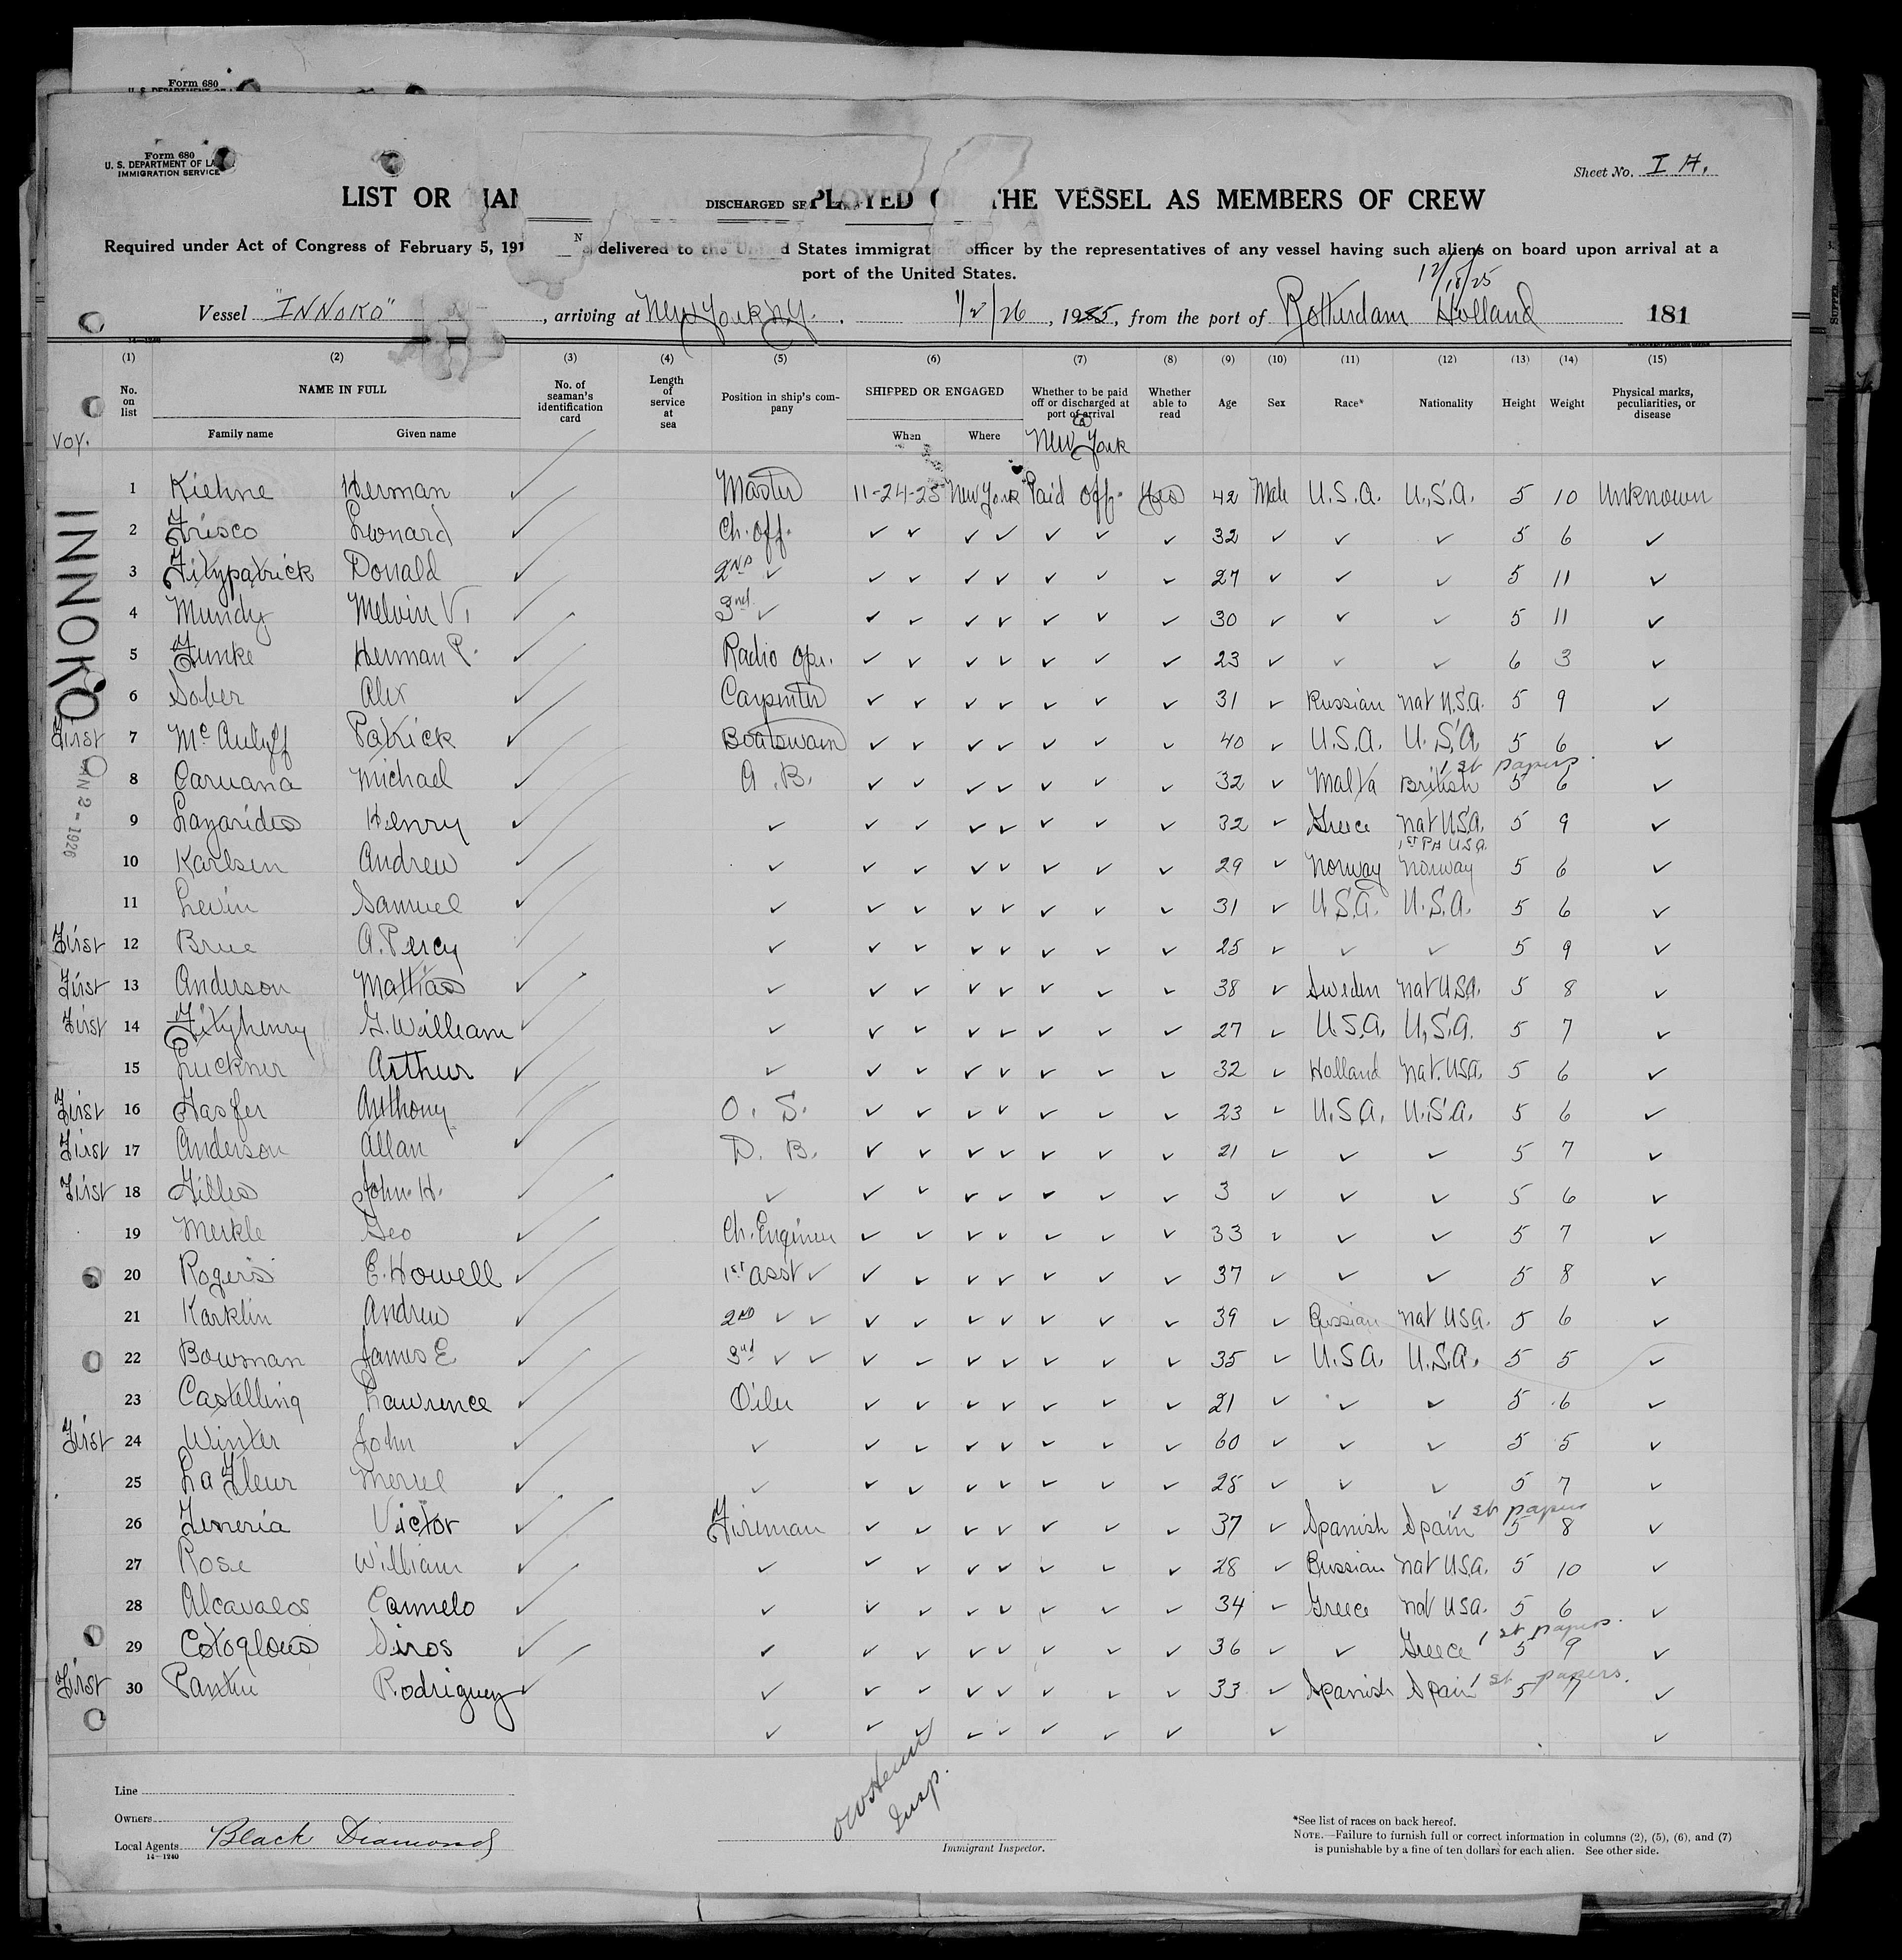 Form 680
Form 680
U. S. DEPARTMENT OF LA
IMMIGRATION SERVICE
Sheet No. I A.
LIST OR DISCHARGED THE VESSEL AS MEMBERS OF CREW
Required under Act of Congress of February 5, 191 delivered to the United States immigration officer by the representatives of any vessel having such aliens on board upon arrival at a
port of the United States.
12/18/25
Vessel "INNOKO", arriving at New York N.Y. 1/2/26, 1925, from the port of Rotterdam Holland 181
(1) (2) (3) (4) (5) (6) (7) (8) (9) (10) (11) (12) (13) (14) (15)
No. on list NAME IN FULL No. of seaman's identification card Length of service at sea Position in ship's company SHIPPED OR ENGAGED Whether to be paid off or discharged at port of arrival Whether able to read Age Sex Race* Nationality Height Weight Physical marks, peculiarities, or disease
Voy. Family name Given name When Where New York
INNOKO
JAN 2 - 1926
1 Kiehne Herman ✓ Master 11-24-25 New York Paid Off Yes 42 Male U.S.A. U.S.A. 5 10 Unknown
2 Frisco Leonard ✓ Ch. Off. ✓ ✓ ✓ ✓ ✓ ✓ ✓ 32 ✓ ✓ ✓ 5 6 ✓
3 Fitzpatrick Donald ✓ 2ND ✓ ✓ ✓ ✓ ✓ ✓ ✓ ✓ 27 ✓ ✓ ✓ 5 11 ✓
4 Mundy Melvin V. ✓ 3rd ✓ ✓ ✓ ✓ ✓ ✓ ✓ ✓ 30 ✓ ✓ ✓ 5 11 ✓
5 Funke Herman P. ✓ Radio Opr. ✓ ✓ ✓ ✓ ✓ ✓ ✓ 23 ✓ ✓ ✓ 6 3 ✓
6 Sober Alex ✓ Carpenter ✓ ✓ ✓ ✓ ✓ ✓ ✓ 31 ✓ Russian nat U.S.A. 5 9 ✓
First 7 Mc Auliff Patrick ✓ Boatswain ✓ ✓ ✓ ✓ ✓ ✓ ✓ 40 ✓ U.S.A. U.S.A. 5 6 ✓
1st papers
8 Caruana Michael ✓ A.B. ✓ ✓ ✓ ✓ ✓ ✓ ✓ 32 ✓ Malta British 5 6 ✓
9 Lazarides Henry ✓ ✓ ✓ ✓ ✓ ✓ ✓ ✓ ✓ 32 ✓ Greece nat U.S.A. 5 9 ✓
1st PA USA
10 Karlsen Andrew ✓ ✓ ✓ ✓ ✓ ✓ ✓ ✓ ✓ 29 ✓ Norway Norway 5 6 ✓
11 Levin Samuel ✓ ✓ ✓ ✓ ✓ ✓ ✓ ✓ ✓ 31 ✓ U.S.A. U.S.A. 5 6 ✓
First 12 Brue A. Percy ✓ ✓ ✓ ✓ ✓ ✓ ✓ ✓ ✓ 25 ✓ ✓ ✓ 5 9 ✓
First 13 Anderson Mattias ✓ ✓ ✓ ✓ ✓ ✓ ✓ ✓ ✓ 38 ✓ Sweden nat USA. 5 8 ✓
First 14 Fitzhenry G. William ✓ ✓ ✓ ✓ ✓ ✓ ✓ ✓ ✓ 27 ✓ U.S.A. U.S.A. 5 7 ✓
15 Luckner Arthur ✓ ✓ ✓ ✓ ✓ ✓ ✓ ✓ ✓ 32 ✓ Holland nat. USA. 5 6 ✓
First 16 Hasfer Anthony O. S. ✓ ✓ ✓ ✓ ✓ ✓ ✓ 23 ✓ U.S.A. U.S.A. 5 6 ✓
First 17 Anderson Allan ✓ D. B. ✓ ✓ ✓ ✓ ✓ ✓ ✓ 21 ✓ ✓ ✓ 5 7 ✓
First 18 John H. ✓ ✓ ✓ ✓ ✓ ✓ ✓ ✓ ✓ 3 ✓ ✓ ✓ 5 6 ✓
19 Merkle Geo ✓ Ch. Engineer ✓ ✓ ✓ ✓ ✓ ✓ ✓ 33 ✓ ✓ ✓ 5 7 ✓
20 Rogers E. Howell ✓ 1st asst ✓ ✓ ✓ ✓ ✓ ✓ ✓ ✓ 37 ✓ ✓ ✓ 5 8 ✓
21 Karklin Andrew ✓ 2ND ✓ ✓ ✓ ✓ ✓ ✓ ✓ ✓ ✓ 39 ✓ Russian nat USA. 5 6 ✓
22 Bowman James E ✓ 3rd ✓ ✓ ✓ ✓ ✓ ✓ ✓ ✓ ✓ 35 ✓ U.S.A. U.S.A. 5 5 ✓
23 Castelling Lawrence ✓ Oiler ✓ ✓ ✓ ✓ ✓ ✓ ✓ 21 ✓ ✓ ✓ 5 6 ✓
First 24 Winter John ✓ ✓ ✓ ✓ ✓ ✓ ✓ ✓ ✓ 60 ✓ ✓ ✓ 5 5 ✓
25 La Fleur Merrel ✓ ✓ ✓ ✓ ✓ ✓ ✓ ✓ ✓ 25 ✓ ✓ ✓ 5 7 ✓
1st papers
26 Feneria Victor ✓ Fireman ✓ ✓ ✓ ✓ ✓ ✓ ✓ 37 ✓ Spanish Spain 5 8 ✓
27 Rose William ✓ ✓ ✓ ✓ ✓ ✓ ✓ ✓ ✓ 28 ✓ Russian nat USA. 5 10 ✓
28 Alcavalos Carmelo ✓ ✓ ✓ ✓ ✓ ✓ ✓ ✓ ✓ 34 ✓ Greece nat USA. 5 6 ✓
1st papers.
29 Cotoglous Siros ✓ ✓ ✓ ✓ ✓ ✓ ✓ ✓ ✓ 36 ✓ ✓ Greece 5 9 ✓
1st papers.
First 30 Rodriguez ✓ ✓ ✓ ✓ ✓ ✓ ✓ ✓ ✓ 33 ✓ Spanish Spain 5 7 ✓
✓ ✓ ✓ ✓ ✓ ✓ ✓ ✓ ✓ ✓
Insp.
Line
Owners
Local Agents Black Diamond
14—1240
Immigrant Inspector.
*See list of races on back hereof.
NOTE.—Failure to furnish full or correct information in columns (2), (5), (6), and (7)
is punishable by a fine of ten dollars for each alien. See other side.